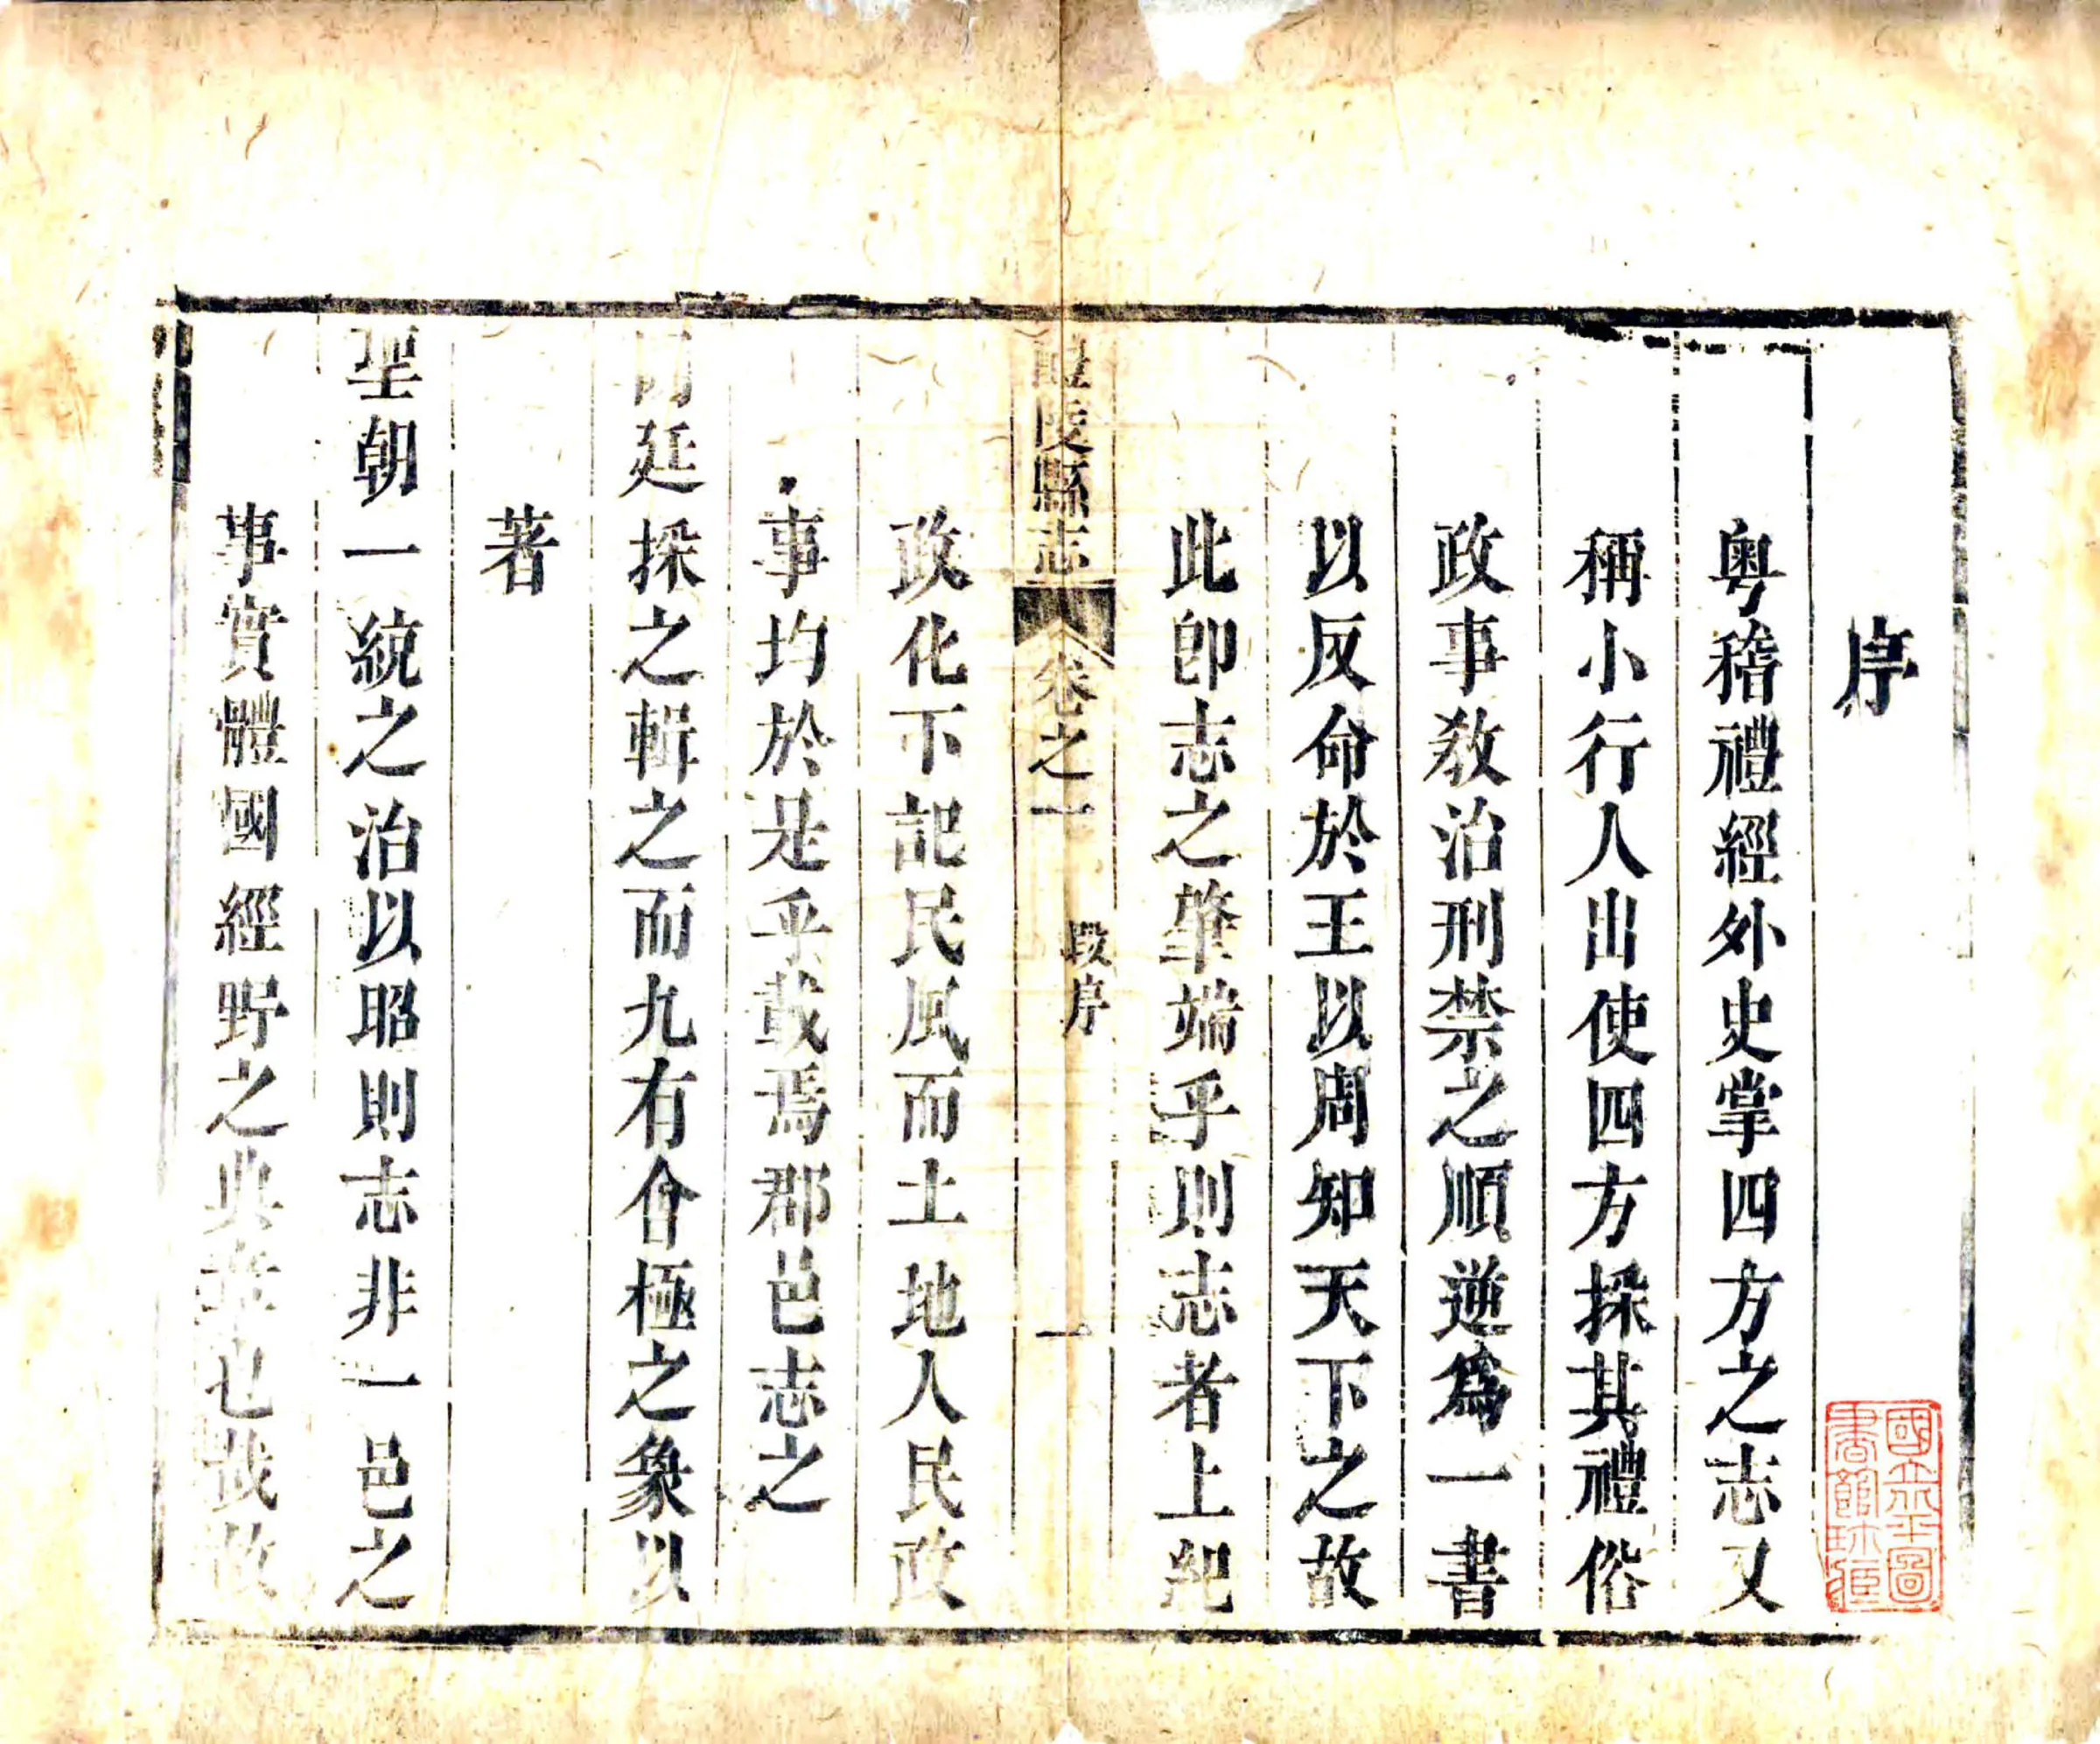 序
粵稽禮經外史掌四方之志又
稱小行人出使四方採其禮俗
政事敎治刑禁之順逆爲一書
以反命於王以周知天下之故
此卽志之肇端乎則志者上紀
醴陵縣志 卷之一 段序 一
政化下記民風而土地人民政
事均於是乎載焉郡邑志之
廷採之輯之而九有會極之象以
著
聖朝一統之治以昭則志非一邑之
事實體國經野之典章也哉故
國立北平圖書館珍藏